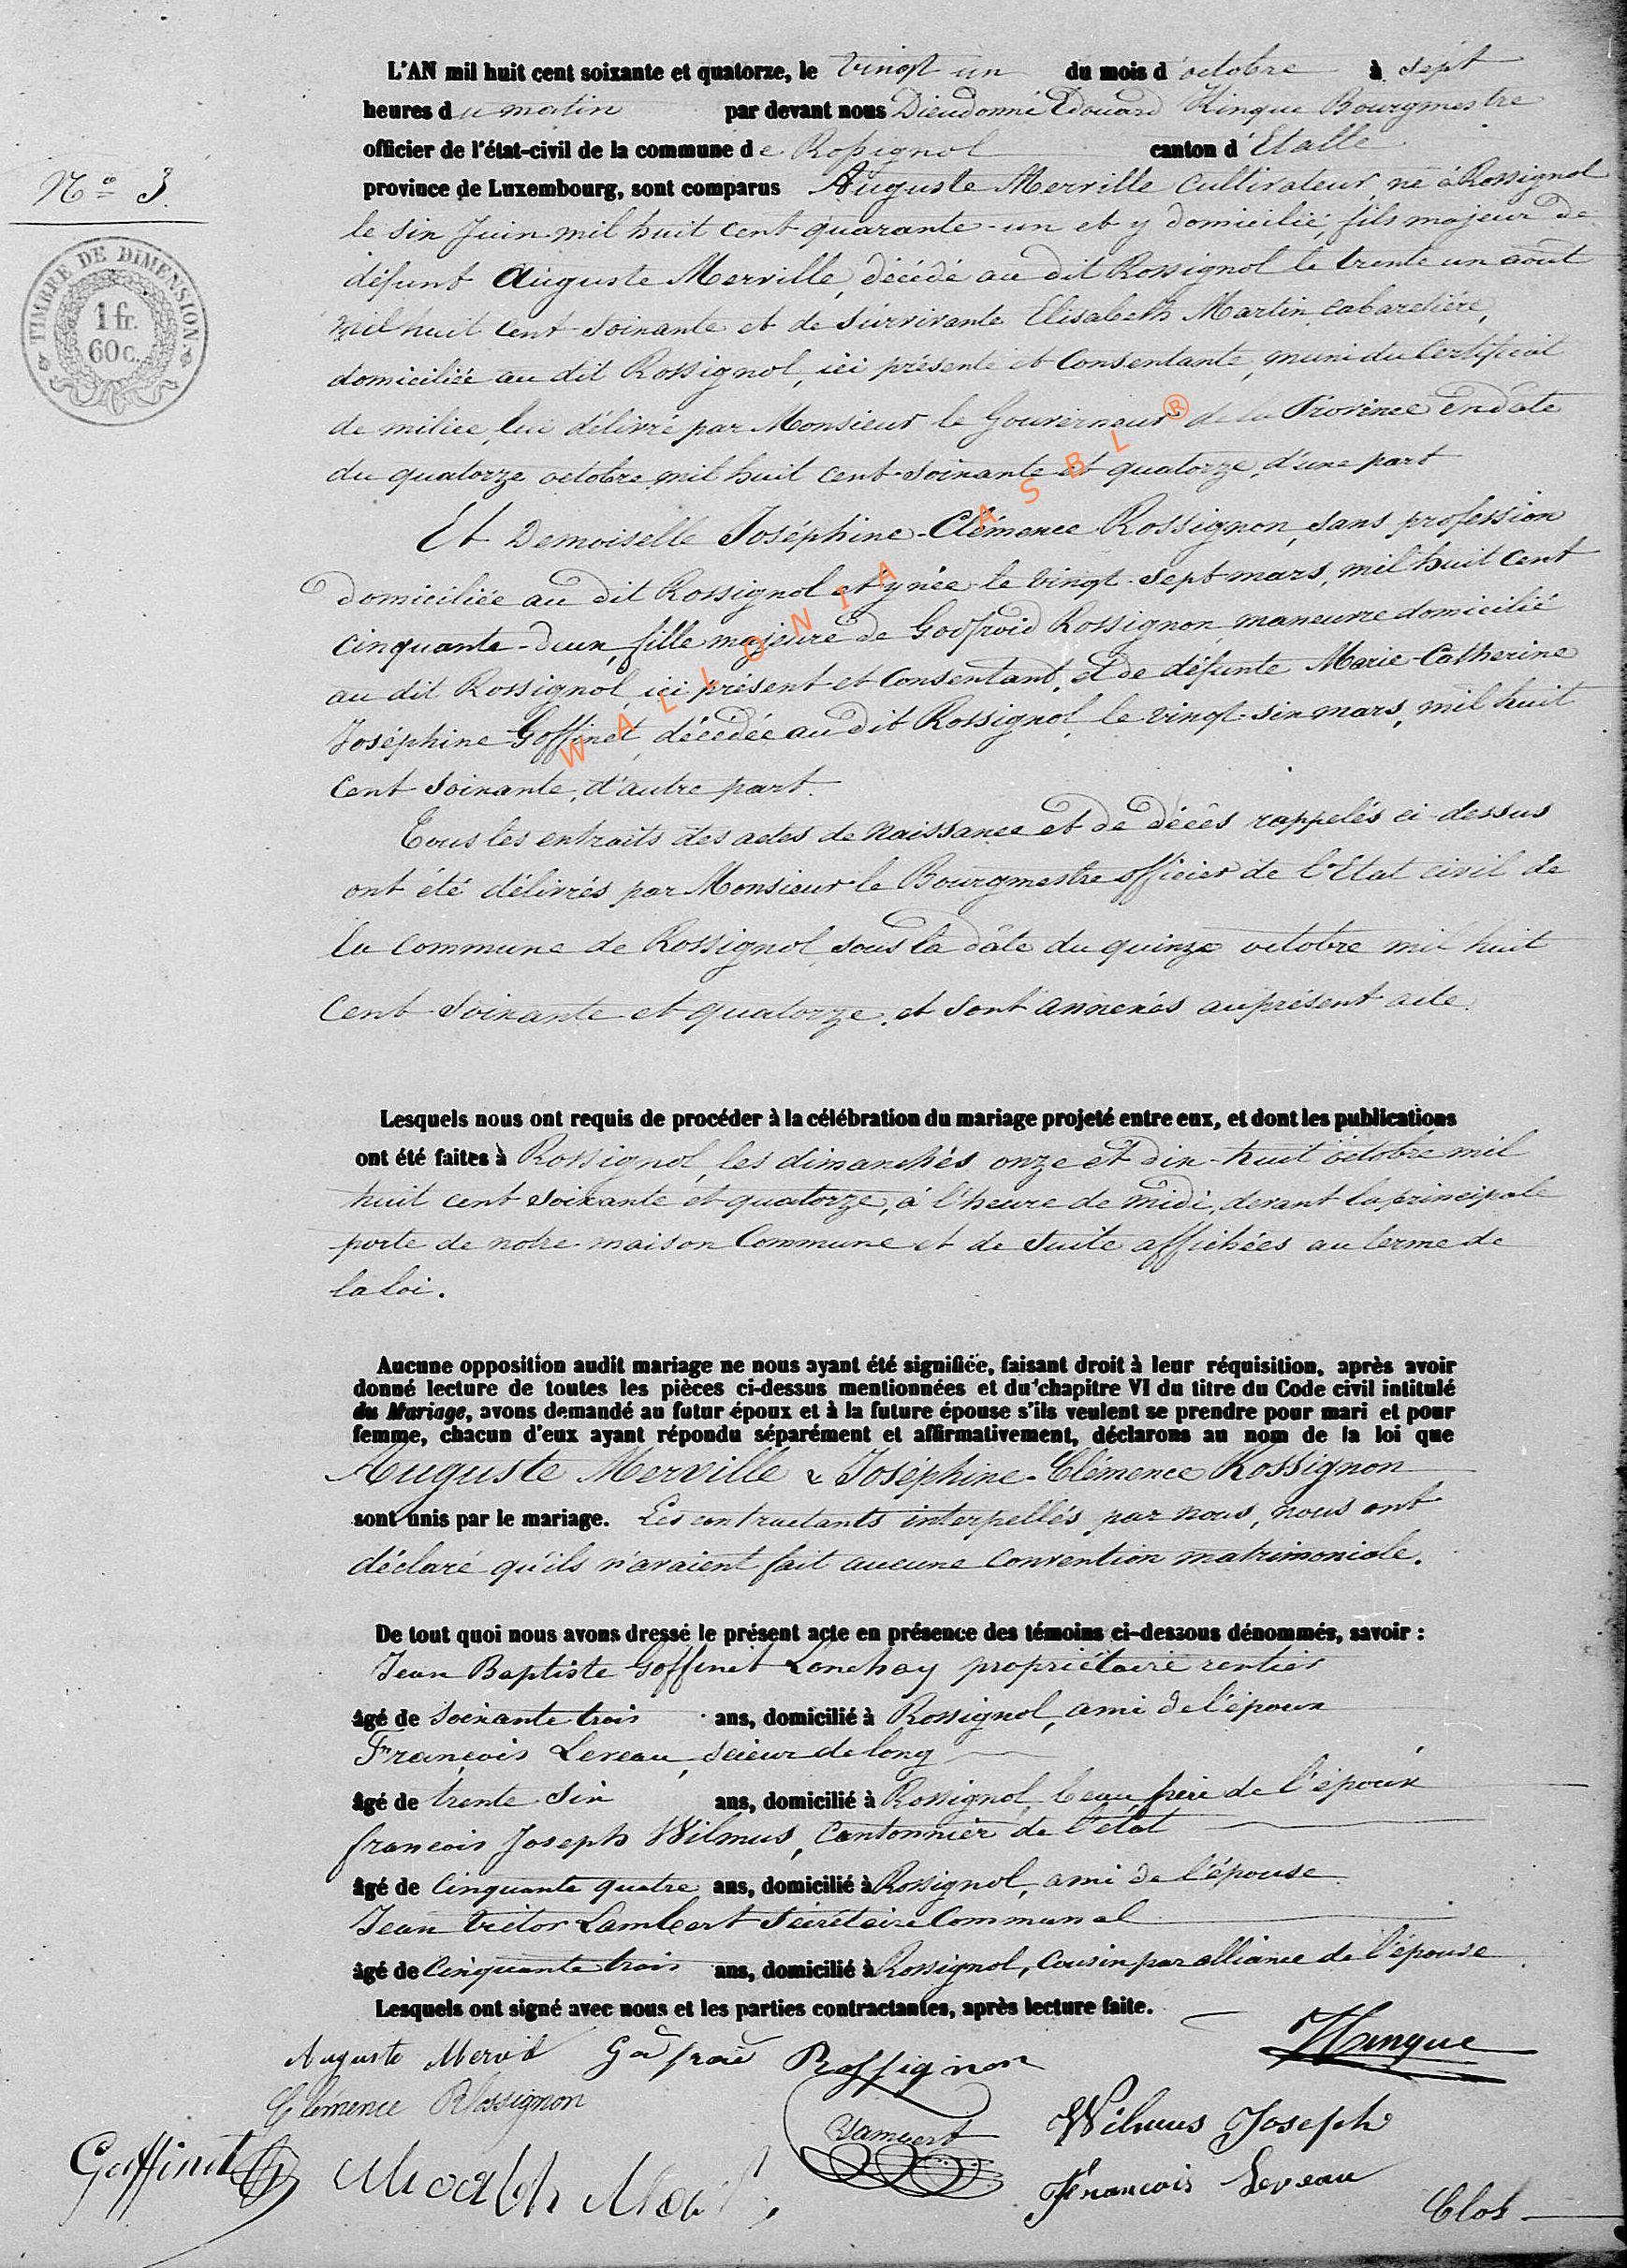 L'AN mil huit cent soixante et quatorze, le vingt un du mois d'octobre à sept
heures du matin par devant nous Dieudonné Edouard Hinque Bourgmestre
officier de l'état-civil de la commune de Rossignol canton d'Etalle
N° 3.
province de Luxembourg, sont comparus Auguste Merville cultivateur, né à Rossignol
le six Juin mil huit cent quarante-un et y domicilié, fils majeur de
défunt Auguste Merville, décédé au dit Rossignol le trente un août
mil huit cent soixante et de survivante Elisabeth Martin cabaretière,
TIMBRE DE DIMENSION
1 fr.
60 c.
domiciliée au dit Rossignol, ici présente et consentante, muni du certificat
de milice, lui délivré par Monsieur le Gouverneur de la Province en date
du quatorze octobre mil huit cent soixante et quatorze, d'une part
Et Demoiselle Joséphine-Clémence Rossignon, sans profession
domiciliée au dit Rossignol et y née le vingt-sept mars, mil huit cent
cinquante-deux, fille majeure de Godfroid Rossignon manœuvre domicilié
au dit Rossignol, ici présent et consentant, et de défunte Marie-Catherine
Joséphine Goffinet, décédée au dit Rossignol, le vingt-six mars, mil huit
cent soixante, d'autre part.
WALLONIA ASBL ®
Tous les extraits des actes de naissance et de décès rappelés ci-dessus
ont été délivrés par Monsieur le Bourgmestre officier de l'Etat civil de
la commune de Rossignol, sous la dâte du quinze octobre mil huit
cent soixante et quatorze, et sont annexés au présent acte.
Lesquels nous ont requis de procéder à la célébration du mariage projeté entre eux, et dont les publications
ont été faites à Rossignol, les dimanchés onze et dix-huit octobre mil
huit cent soixante et quatorze, à l'heure de midi, devant la principale
porte de notre maison commune et de suite affichées au terme de
la loi.
Aucune opposition audit mariage ne nous ayant été signifiée, faisant droit à leur réquisition, après avoir
donné lecture de toutes les pièces ci-dessus mentionnées et du chapitre VI du titre du Code civil intitulé
du Mariage, avons demandé au futur époux et à la future épouse s'ils veulent se prendre pour mari et pour
femme, chacun d'eux ayant répondu séparément et affirmativement, déclarons au nom de la loi que
Auguste Merville & Joséphine-Clémence Rossignon
sont unis par le mariage. Les contractants interpellés par nous, nous ont
déclaré qu'ils n'avaient fait aucune convention matrimoniale.
De tout quoi nous avons dressé le présent acte en présence des témoins ci-dessous dénommés, savoir :
Jean Baptiste Goffinet Lonchay propriétaire rentier
âgé de soixante trois ans, domicilié à Rossignol, ami de l'époux
François Leveau, scieur de long
âgé de trente six ans, domicilié à Rossignol, beau frère de l'époux
françois Joseph Wilmus, Cantonnier de l'état
âgé de cinquante quatre ans, domicilié à Rossignol, ami de l'épouse
Jean Victor Lambert Secrétaire Communal
âgé de cinquante trois ans, domicilié à Rossignol, cousin par alliance de l'épouse
Lesquels ont signé avec nous et les parties contractantes, après lecture faite.
Hinque
Auguste Mervil Godfroid Rossignon
Clémence Rossignon
Lambert Wilmus Joseph
Goffinet
François Leveau
Clos